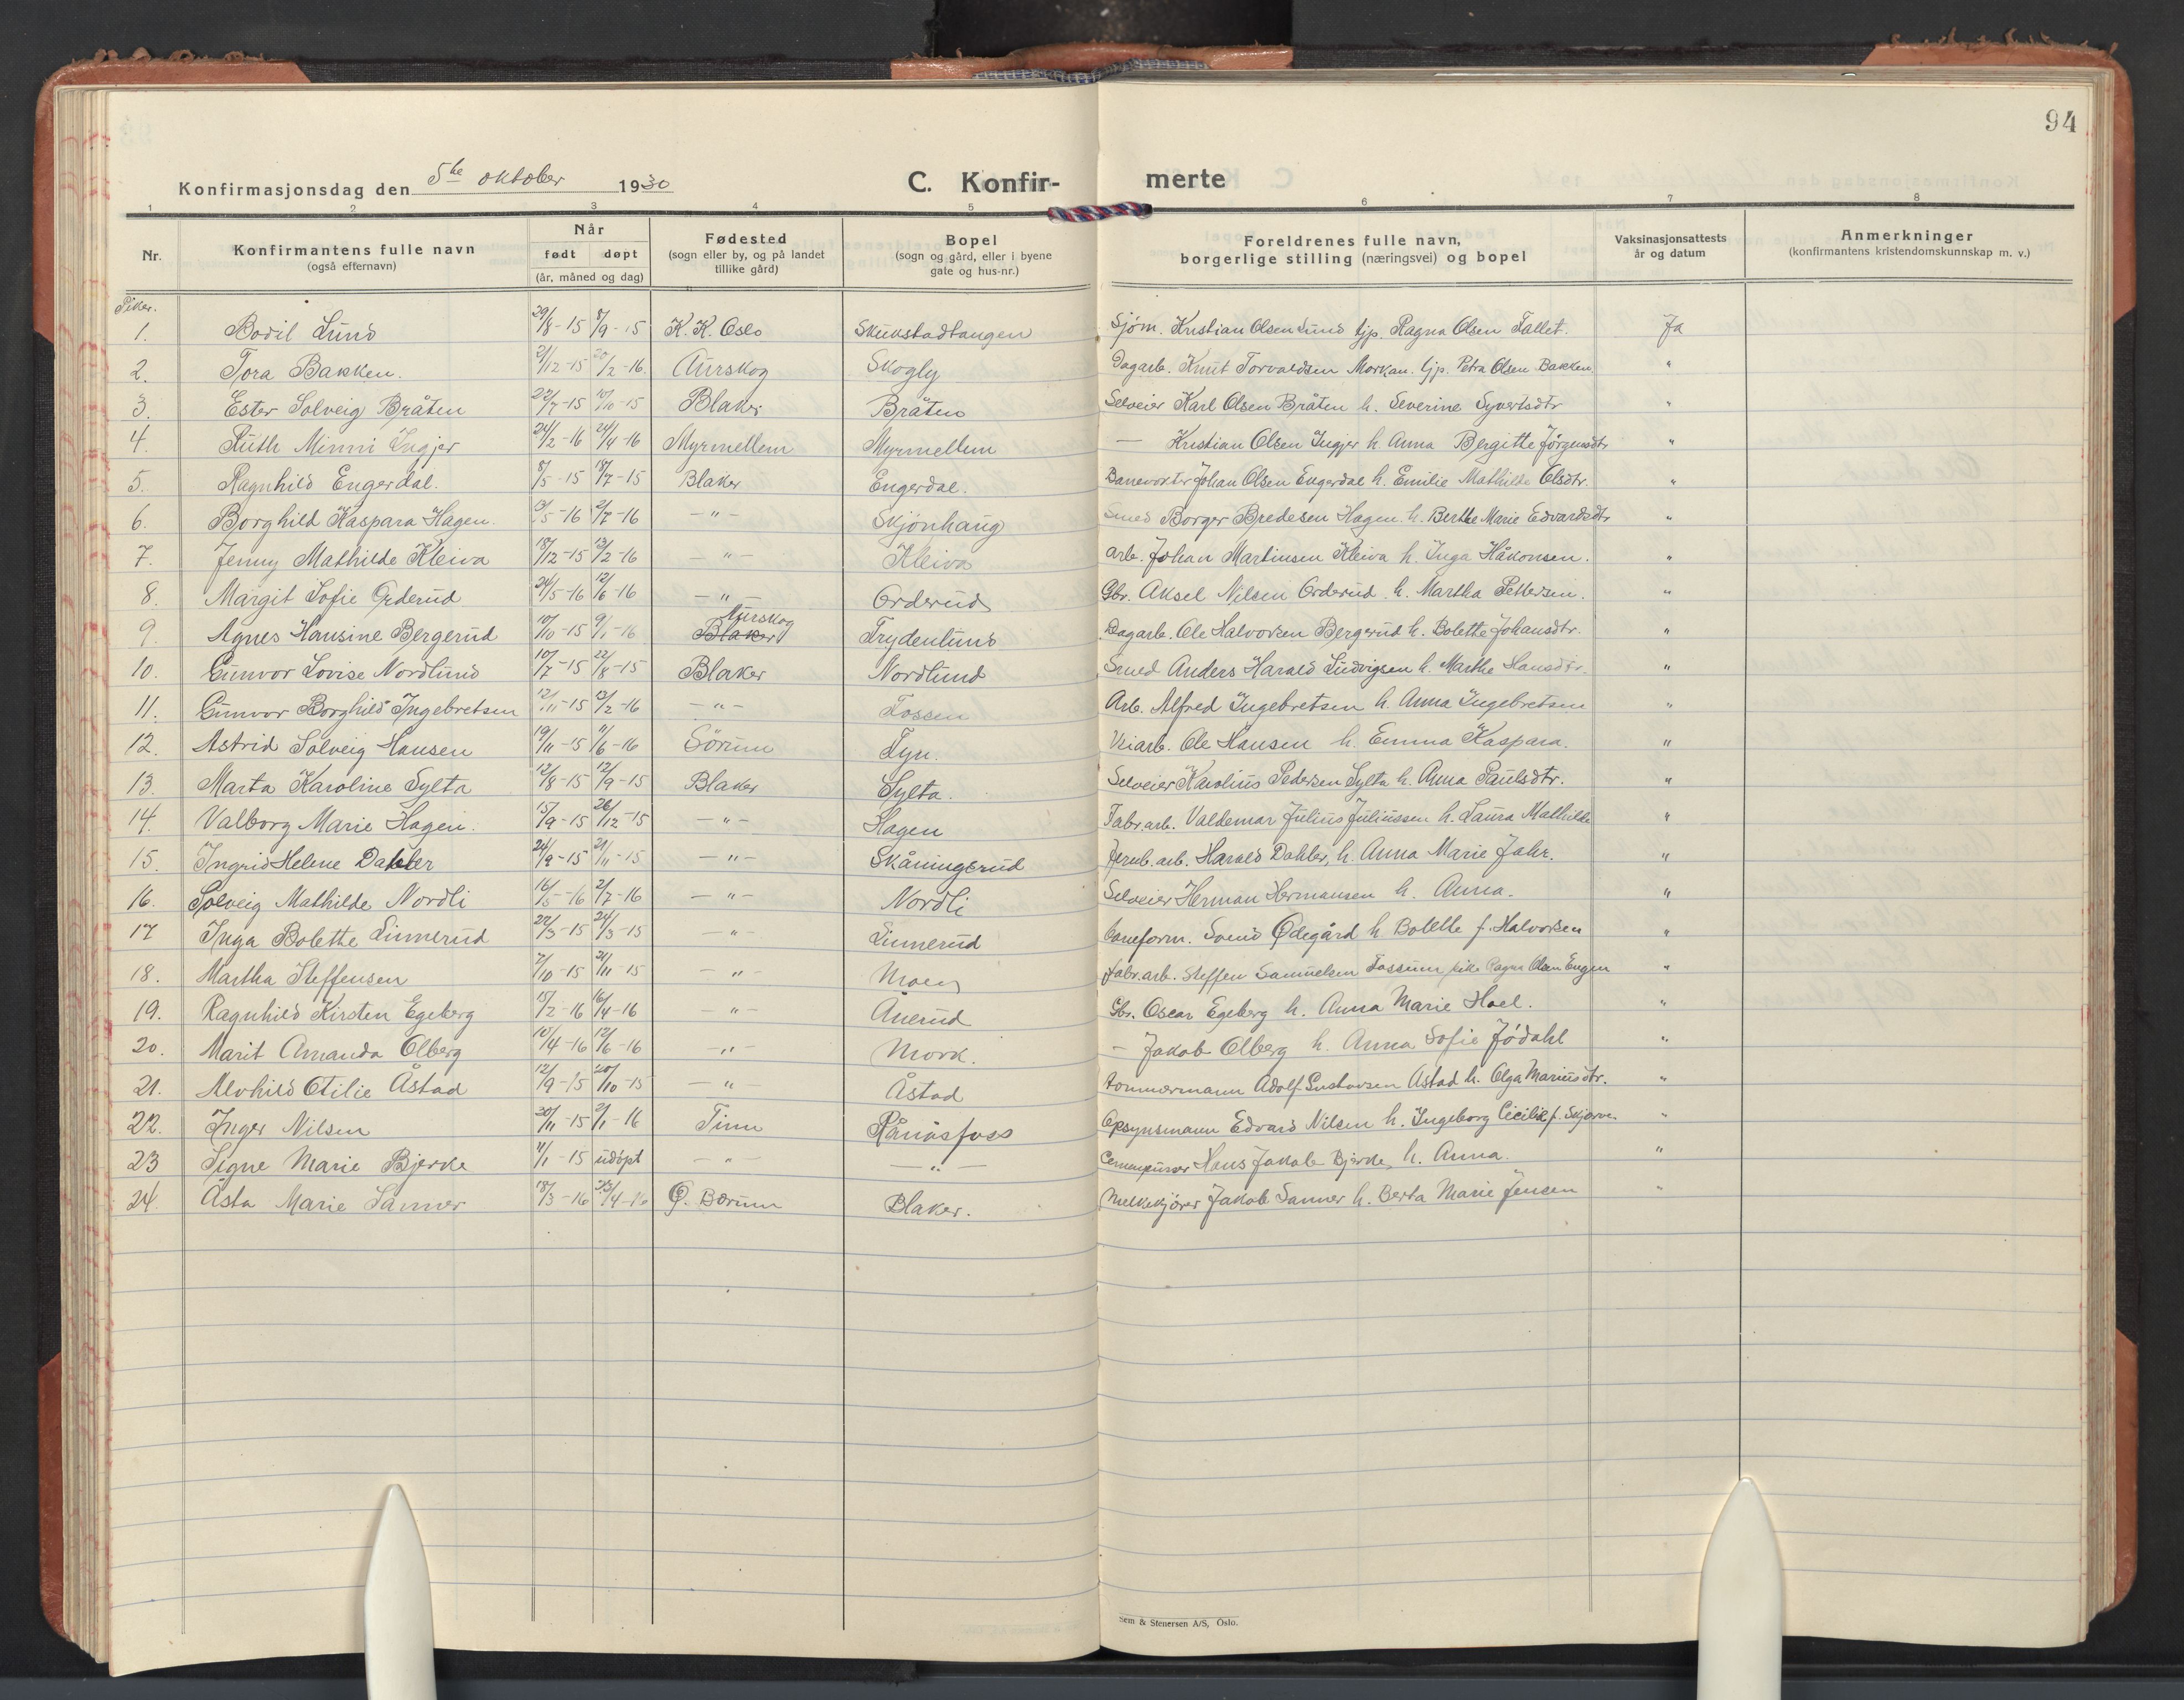 94
Konfirmasjonsdag den 5te oktober 1930 C. Konfir- merte
1 2 3 4 5 6 7 8
Nr. Konfirmantens fulle navn (også efternavn) Når født døpt (år, måned og dag) Fødested (sogn eller by, og på landet tillike gård) Bopel (sogn og gård, eller i byene gate og hus-nr.) Foreldrenes fulle navn, borgerlige stilling (næringsvei) og bopel Vaksinasjonsattests år og datum Anmerkninger (konfirmantens kristendomskunnskap m. v.)
Piker.
1. Bodil Lund 29/8-15 8/9-15 K. K. Oslo Skukstadtangen Sjøm. Kristian Olsen Lund tjp. Ragna Olsen Fallet. Ja
2. Tora Bakken. 21/12-15 20/2-16. Aurskog Skogly Dagarb. Knut Torvaldsen Morkan. tjp. Petra Olsen Bakken "
3. Ester Solveig Bråten 22/7-15 10/10-15 Blaker Bråten Selveier Karl Olsen Bråten h. Severine Syvertsdtr "
4. Ruth Minni Ingjer 24/2-16 24/4-16 Myrmellem Myrmellem — Kristian Olsen Ingjer h Anna Bergitte Jörgensdtr "
5. Ragnhild Engerdal. 8/5-15 18/7-15 Blaker Engerdal. Banevokter Johan Olsen Engerdal h. Emilie Mathilde Olsdtr. "
6. Borghild Kaspara Hagen. 31/5-16 2/7-16 — " — Skjönhaug Smed Borger Bredesen Hagen. h. Berthe Marie Edvardsdtr "
7. Jenny Mathilde Kleiva 18/12-15 13/2-16 — " — Kleiva Arb. Johan Martinsen Kleiva h. Inga Håkonsen. "
8. Margit Sofie Orderud 24/5-16 12/6-16 — " — Orderud Gbr. Aksel Nilsen Orderud. h. Martha Pettersen. "
9. Agnes Hansine Bergerud 10/10-15 9/1-16 Blaker Aurskog Frydenlund Dagarb. Ole Halvorsen Bergerud h. Bolette Johansdtr. "
10. Gunvor Lovise Nordlund 10/7-15 22/8-15 Blaker Nordlund Smed Anders Harald Ludvigsen h. Marthe Hansdtr. "
11. Gunvor Borghild Ingebretsen 12/11-15 13/2-16 — " — Fossen Arb. Alfred Ingebretsen h. Anna Ingebretsen "
12. Astrid Solveig Hansen 19/11-15 11/6-16 Sörum Fyn. Veiarb. Ole Hansen h. Emma Kaspara. "
13. Marta Karoline Sylta 12/8-15 12/9-15 Blaker Sylta. Selveier Karolius Pedersen Sylta h. Anna Paulsdtr. "
14. Valborg Marie Hagen. 15/9-15 26/12-15 — " — Hagen Fabr.arb. Valdemar Julius Juliussen h. Laura Mathilde "
15. Ingrid Helene Dahler 24/9-15 21/11-15 — " — Skåningsrud Jernb.arb. Harald Dahler, h. Anna Marie Jahr. "
16. Solveig Mathilde Nordli 16/5-16 2/7-16 — " — Nordli Selveier Herman Hermansen h. Anna. "
17 Inga Bolette Linnerud 22/3-15 24/5-15 — " — Linnerud Baneform. Svend Ødegård h Bolette f. Halvorsen "
18. Martha Steffensen 7/10-15 21/11-15 — " — Moen Fabr.arb. Steffen Samuelsen Fossum, pike Ragna Olsen Engen "
19. Ragnhild Kirsten Egeberg 15/2-16 16/4-16 — " — Auerud Gbr. Oscar Egeberg h. Anna Marie Hoel. "
20. Marit Amanda Olberg 10/4-16 12/6-16 — " — Mork. — Jakob Olberg h. Anna Sofie Jödahl "
21. Alvhild Otilie Åstad 12/9-15 20/10-15 — " — Åstad Tömmermann Adolf Gustavsen Åstad h. Olga Mariusdtr. "
22. Inger Nilsen 30/11-15 2/1-16 Tinn Rånåsfoss Opsynsmann Edvard Nilsen h. Ingeborg Cicilie f. Skjerve. "
23 Signe Marie Bjerke 11/1-15 udöpt — " — — " — Hans Jakob Bjerke, h. Anna. "
24. Åsta Marie Sanner 18/3-16 23/4-16 Ø. Bærum Blaker. Melkekjører Jakob Sanner h. Berta Marie Jensen "
Sem & Stenersen A/S, Oslo.